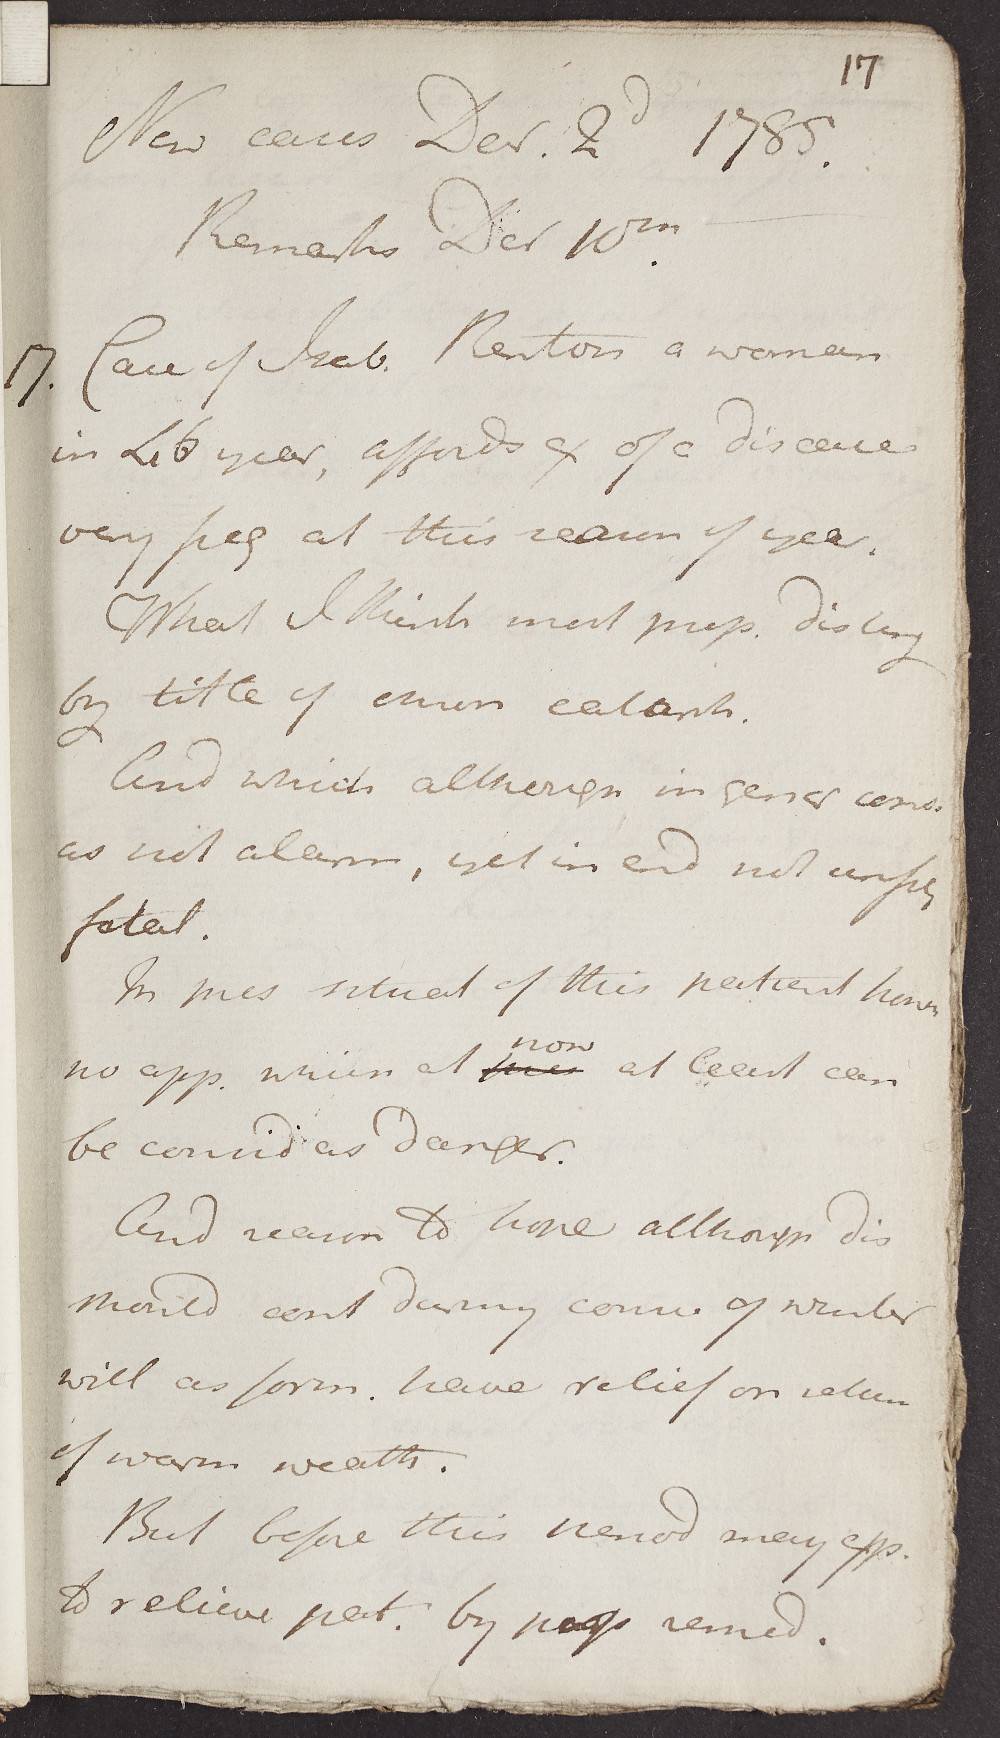 17
New cases Decr. 2d 1785.
Remarks Decr 10th.
17. Case of Isab. Rentoñ a woman
in 46 year, affords ex of a disease
very freq at this season of year.
What I think most prop. disting
by title of chron catarrh.
And which although in gener consi
as not alarm, yet in end not unfreq
fatal.
In pres situat of this patient howr
no app. which at now at least can
be consid as danger.
And reason to hope although dis
should cont during course of winter
will as form. have relief on return
of warm weath.
But before this period may exp.
to relieve pat. by prop remed.